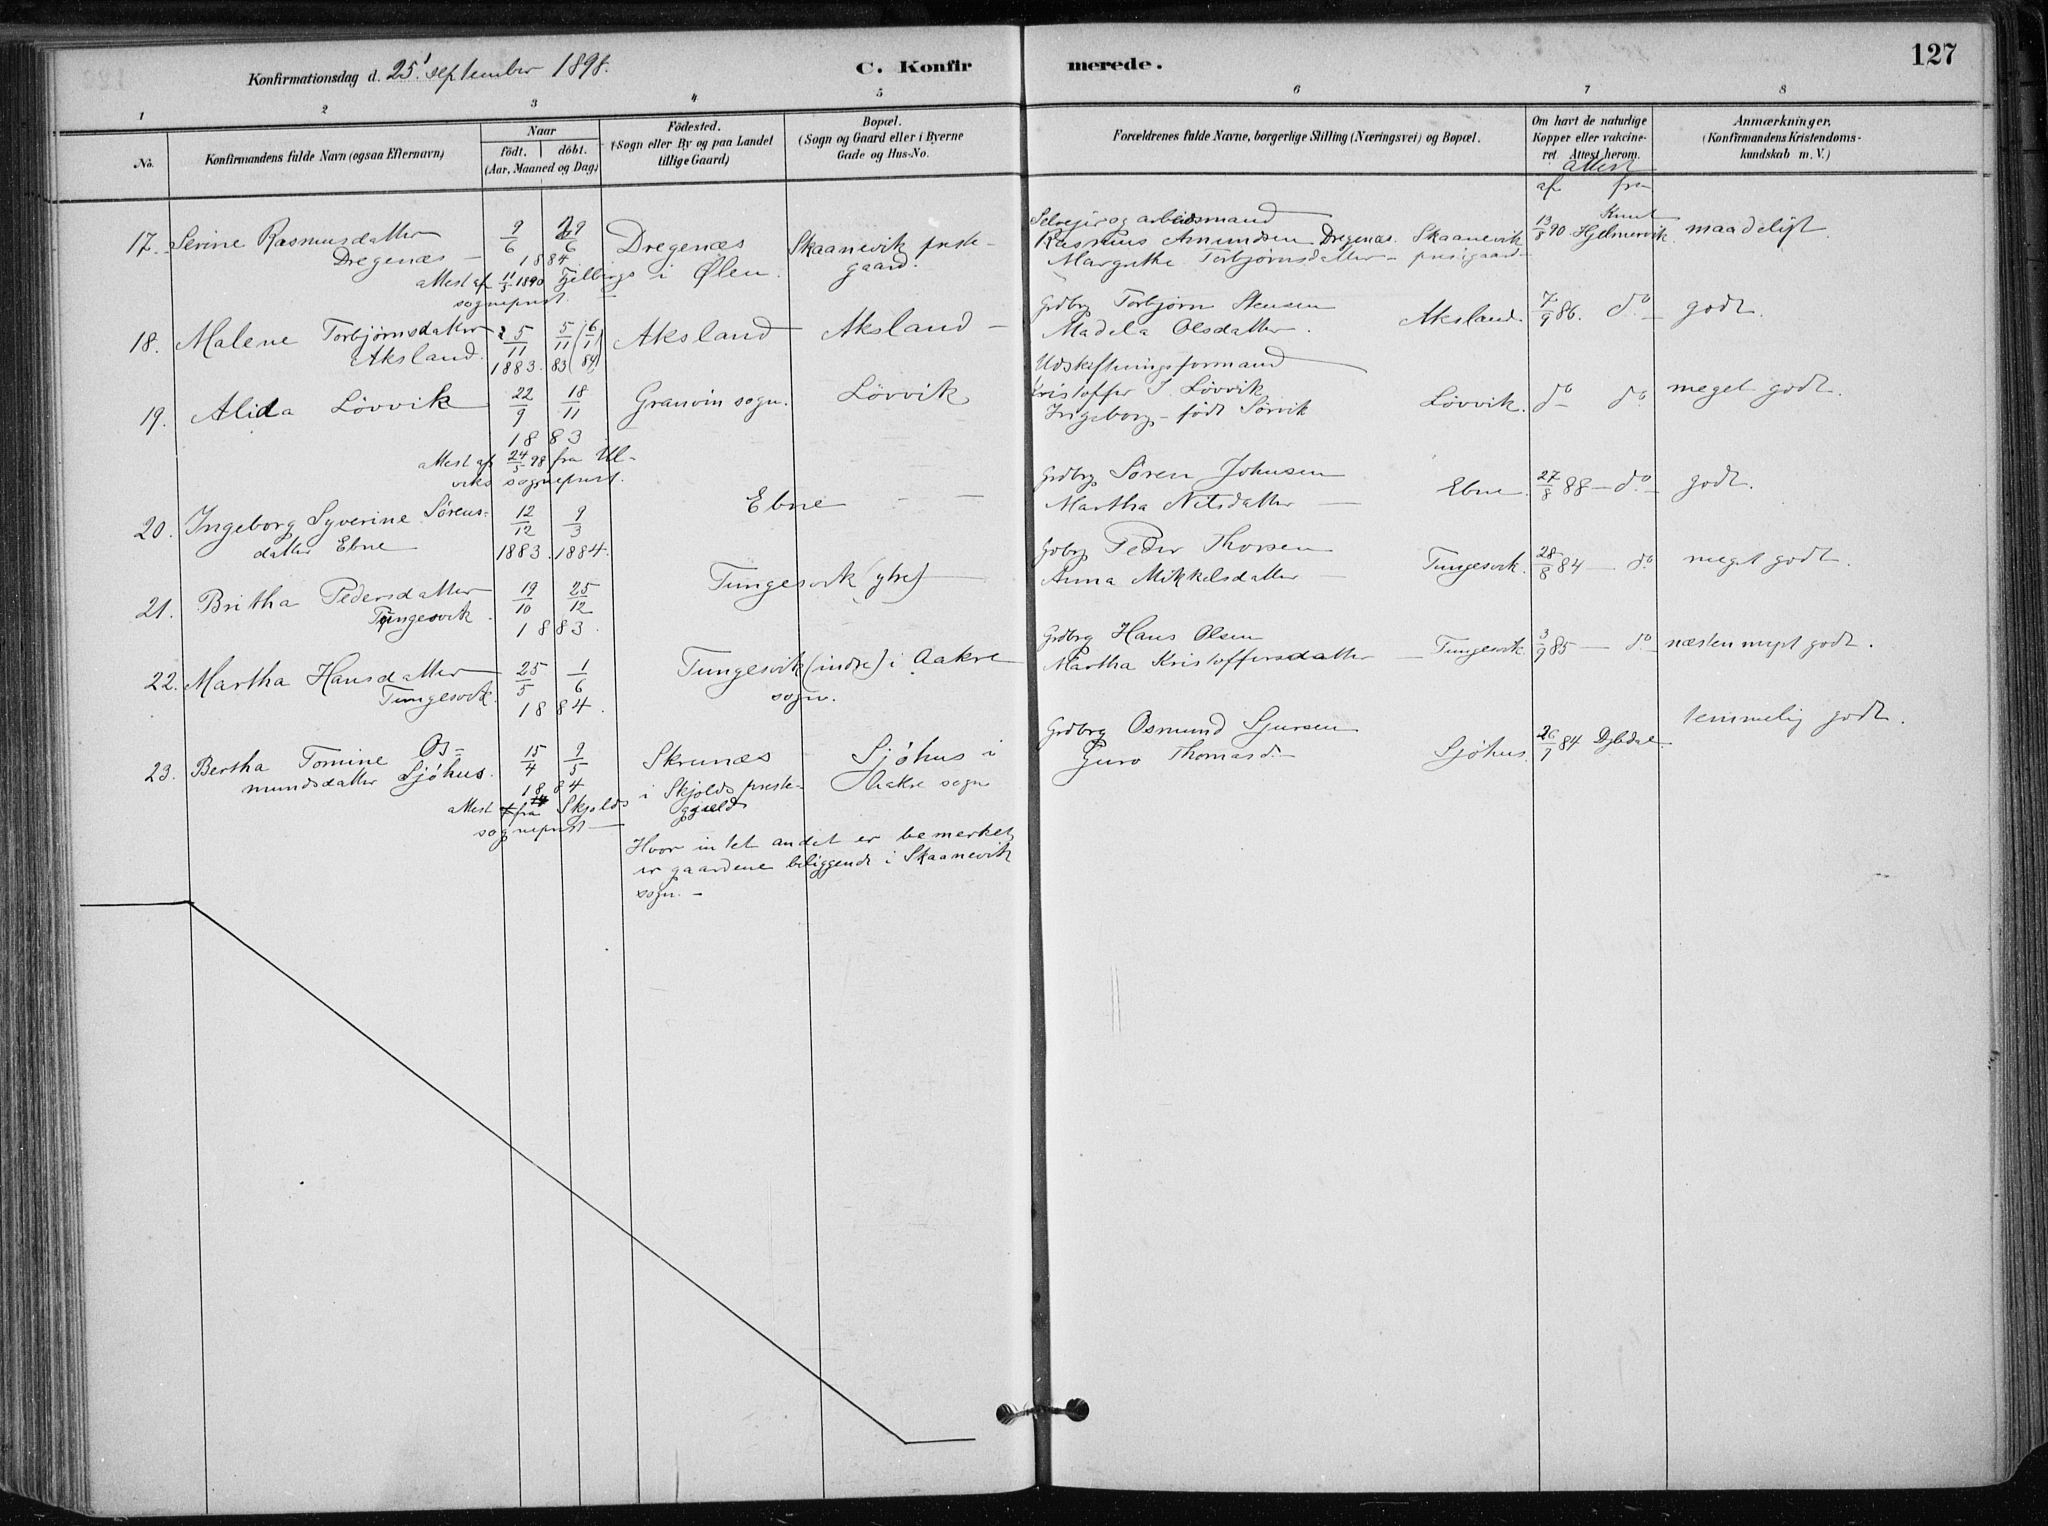 127
Konfirmationsdag d. 25' september 1898.
C. Konfirmerede.
1 2 3 4 5 6 7 8
No.
Konfirmandens fulde Navn (ogsaa Efternavn)
Naar
födt. döbt.
(Aar, Maaned og Dag)
Födested.
(Sogn eller By og paa Landet
tillige Gaard)
Bopæl.
(Sogn og Gaard eller i Byerne
Gade og Hus-No.
Forældrenes fulde Navne, borgerlige Stilling (Næringsvei) og Bopæl.
Om havt de naturlige
Kopper eller vakcine-
ret. Attest herom.
Anmærkninger.
(Konfirmandens Kristendoms-
kundskab m. V.)
attest
af fra
17. Serine Rasmusdatter
Dregenæs —
9/6 29/6
1884
Dregenæs
Skaanevik preste-
gaard.
attest af 11/3 1890 Fjelbergs i Ølen.
sogneprest.
Selveier og arbeidsmand
Rasmus Amundsen Dregenæs. Skaanevik
Margrethe Torbjørnsdatter — prestgaard —
13/8 90 Knut
Hjelmervik
maadeligt.
18. Malene Torbjørnsdatter
Aksland.
5/11 5/11 (6/1)
1883. 83 (84)
Aksland — Aksland —
Grdbrg Torbjørn Stensen
Madela Olsdatter.
Aksland.
7/9 86. do —
godt.
19. Alida Lövvik
22/9 18/11
1883
Granvin sogn.
Lövvik
attest af 24/5 98 fra Ul-
viks sogneprest.
Udskiftningsformand
Kristoffer J. Lövvik
Ingeborg — född Sørvik
Lövvik.
do do
meget godt.
20. Ingeborg Syverine Sørens-
datter Ebne
12/12 9/3
1883. 1884.
Ebne — —
Grdbrg Søren Johnsen
Martha Nilsdatter —
Ebne.
27/8 88 — do —
godt.
21. Britha Pedersdatter
Tungesvik.
19/10 25/12
1883.
Tungesvik (ytre) —
Grdbrg Peder Thorsen
Anna Mikkelsdatter —
Tungesvik.
28/8 84 — do
meget godt.
22. Martha Hansdatter
Tungesvik.
25/5 1/6
1884.
Tungesvik (indre) i Aakre
sogn.
Grdbrg Hans Olsen
Martha Kristoffersdatter —
Tungesvik.
3/9 85 — do —
næsten meget godt.
23. Bertha Tomine Os-
mundsdatter Sjöhus.
15/4 9/5
1884
Skrunæs
i Skjolds preste-
gjeld
Sjöhus i
Aakre sogn
attest fra Skjolds
sogneprest —
Grdbrg Osmund Sjursen
Guro Thomasd. —
Sjöhus.
26/9 84
temmelig godt.
Hvor intet andet er bemerket,
er gaardene beliggende i Skaanevik
sogn. —